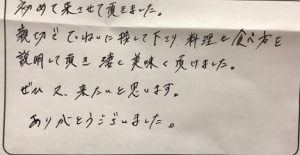 初めて来させて頂きました。
親切でていねいに接して下さり 料理も食べ方を
説明して頂き 凄く美味く頂けました。
ぜひ又、来たいと思います。
ありがとうございました。